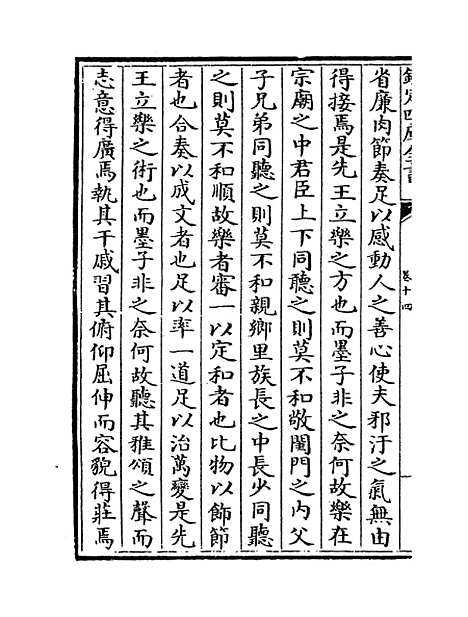 欽定四庫全書
卷十四
省廉肉節奏足以感動人之善心使夫邪汙之氣無由
得接焉是先王立樂之方也而墨子非之奈何故樂在
宗廟之中君臣上下同聽之則莫不和敬閨門之內父
子兄弟同聽之則莫不和親鄉里族長之中長少同聽
之則莫不和順故樂者審一以定和者也比物以飾節
者也合奏以成文者也足以率一道足以治萬變是先
王立樂之術也而墨子非之奈何故聽其雅頌之聲而
志意得廣焉執其干戚習其俯仰屈伸而容貌得莊焉